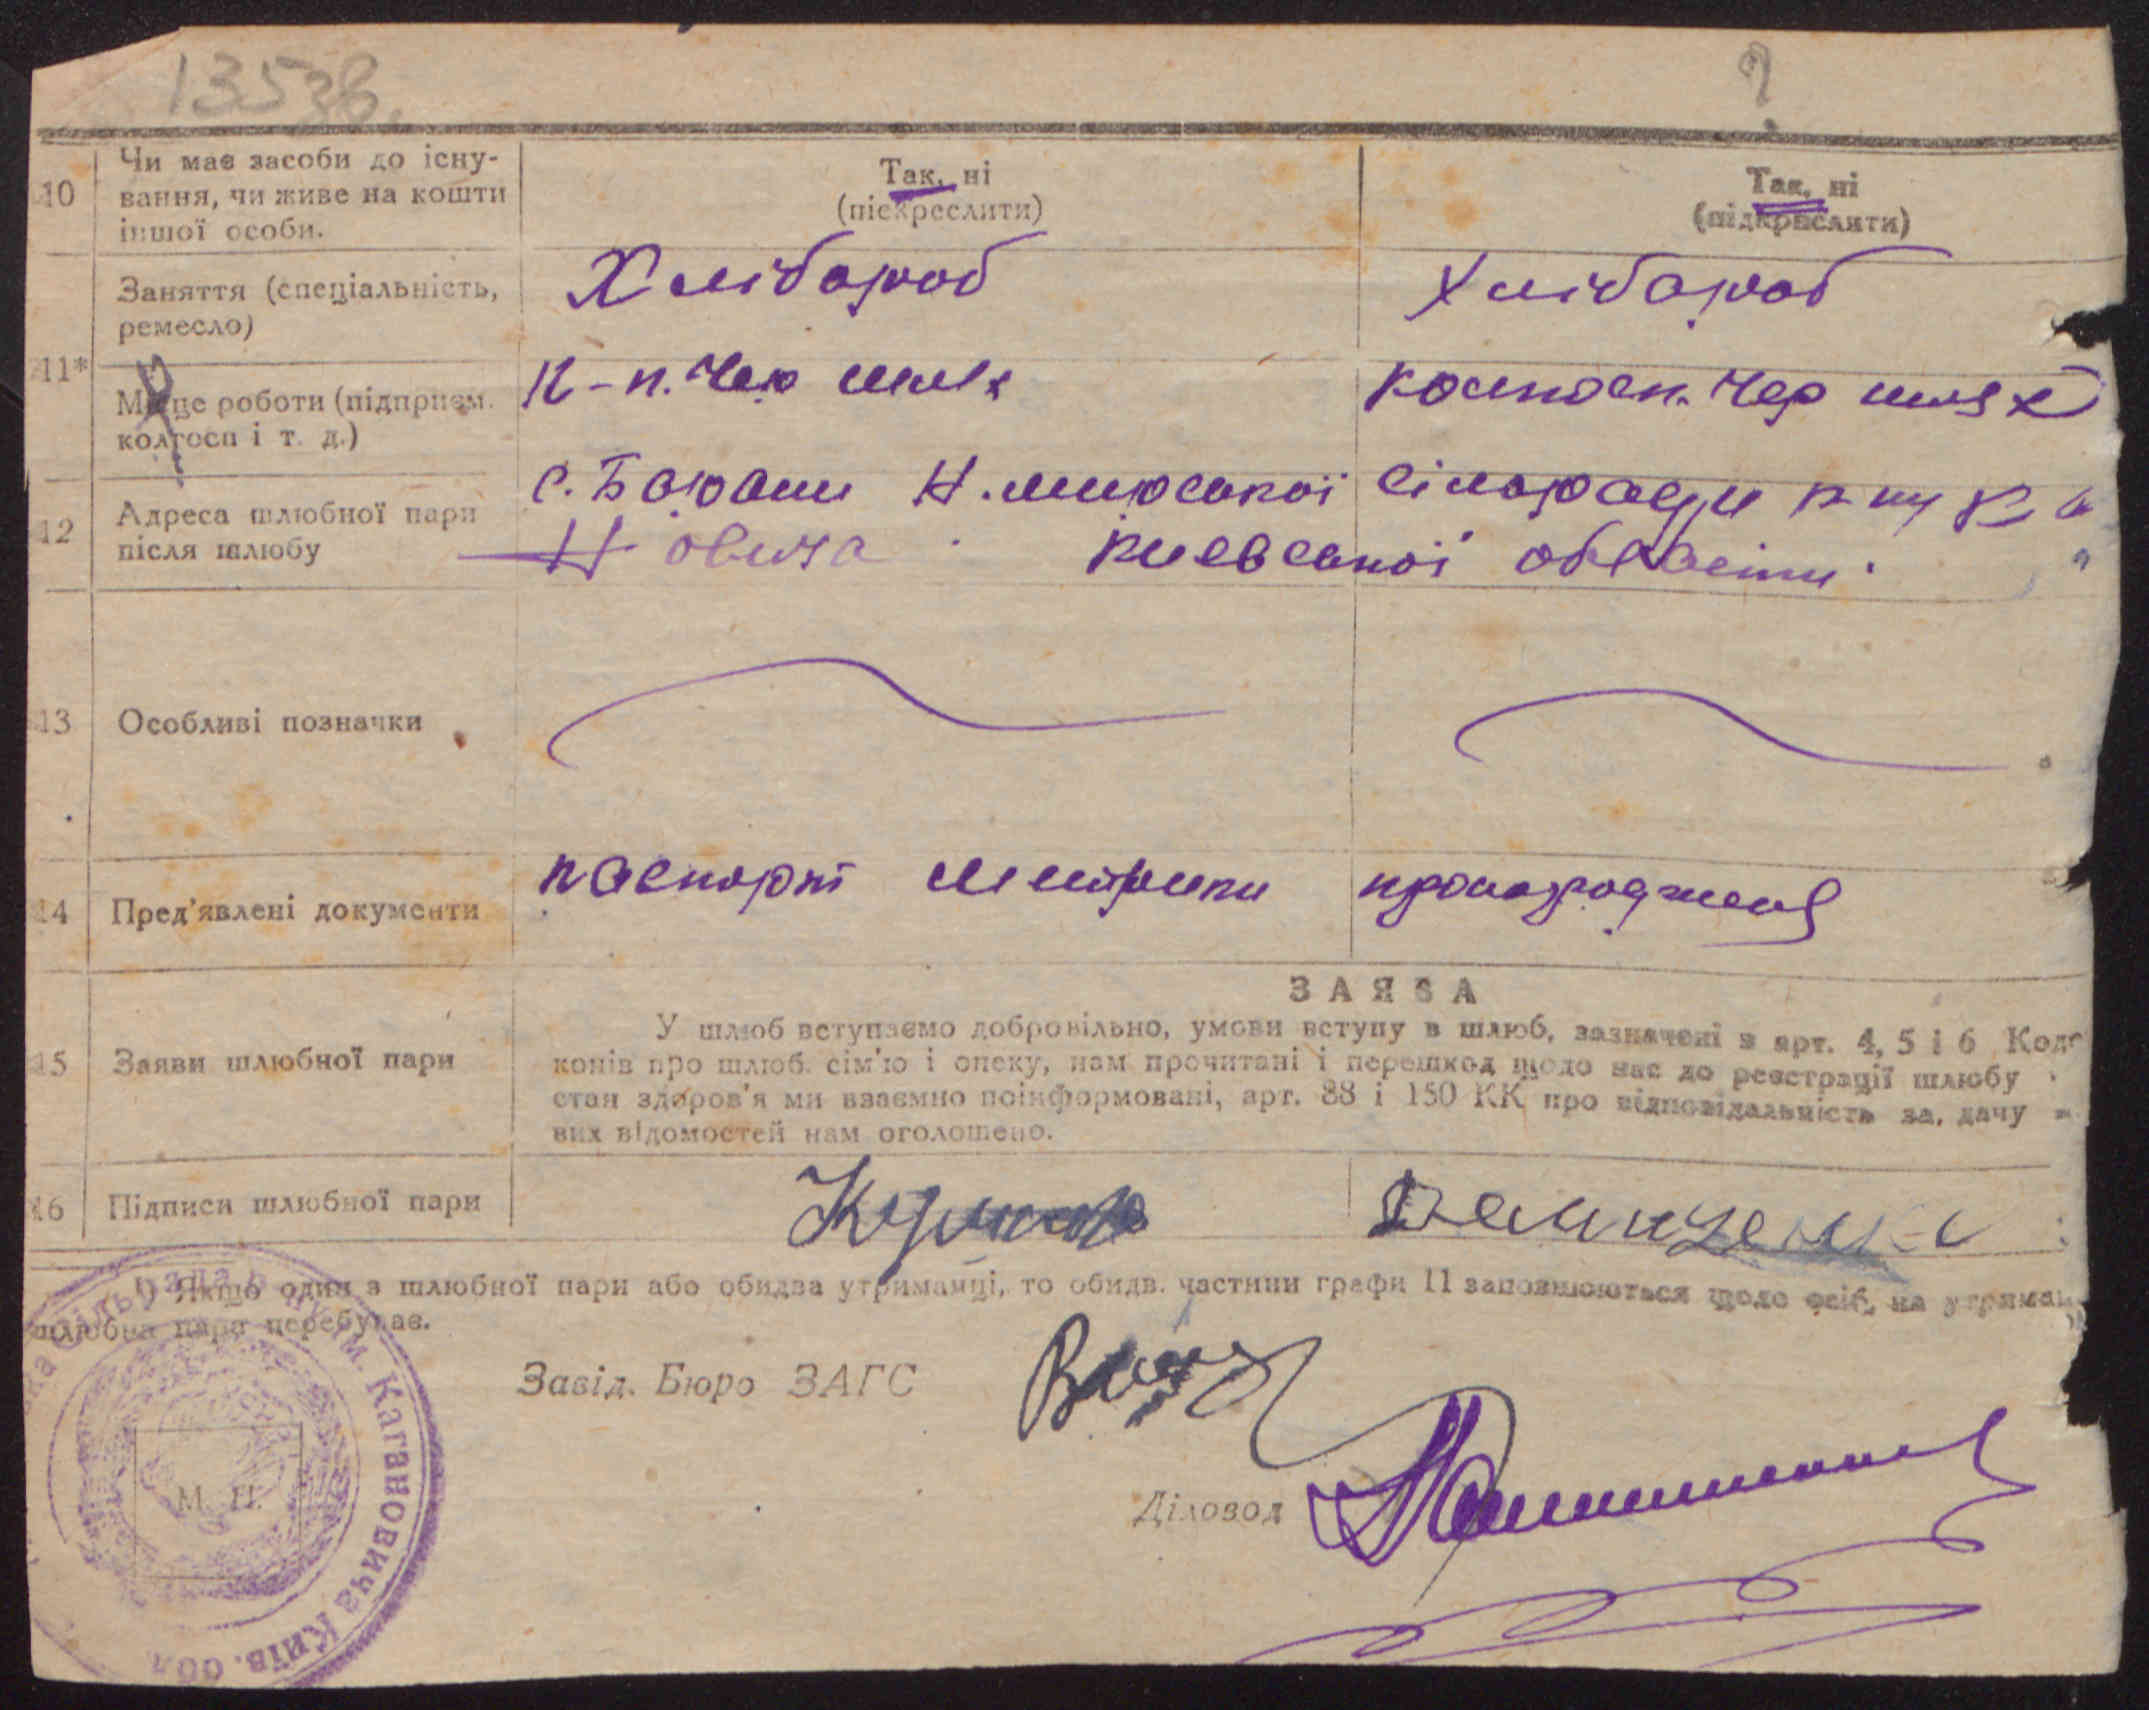 13538.
?
10 Чи має засоби до існу-
вання, чи живе на кошти
іншої особи.
Так, ні
(підкреслити)
Так, ні
(підкреслити)
11*
Заняття (спеціальність,
ремесло)
Хлібороб
Хлібороб
Місце роботи (підприєм.
колгосп і т. д.)
К-п. Чер шлях
колгосп. Чер шлях
12 Адреса шлюбної пари
після шлюбу
с. Бараши Н. сільради
овича Київської області
13 Особливі позначки
14 Пред'явлені документи
паспорт метрики
15 Заяви шлюбної пари
ЗАЯВА
У шлюб вступаємо добровільно, умови вступу в шлюб, зазначені в арт. 4, 5 і 6 Коде
конів про шлюб. сім'ю і опеку, нам прочитані і перешкод щодо нас до реєстрації шлюбу
стан здоров'я ми взаємно поінформовані, арт. 88 і 150 КК про відповідальність за дачу
вих відомостей нам оголошено.
16 Підписи шлюбної пари
1) Якщо один з шлюбної пари або обидва утриманці, то обидв. частини графи 11 заповнюються щодо осіб, на утриман
шлюбна пара перебуває.
Завід. Бюро ЗАГС
Діловод
М. П.
ім. Кагановича Київ. обл